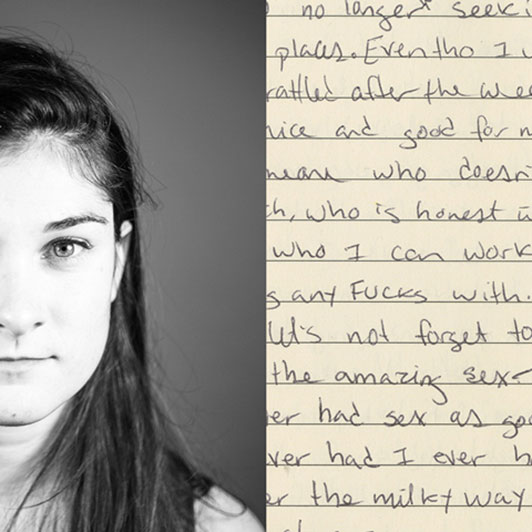 no longer seeki
places. Even tho I
rattled after the wee
nice and good for m
mean who doesn'
h, who is honest
who I can work
s any FUCKs with
let's not forget to
the amazing sex
er had sex as goo
ver had I ever h
er the milky way